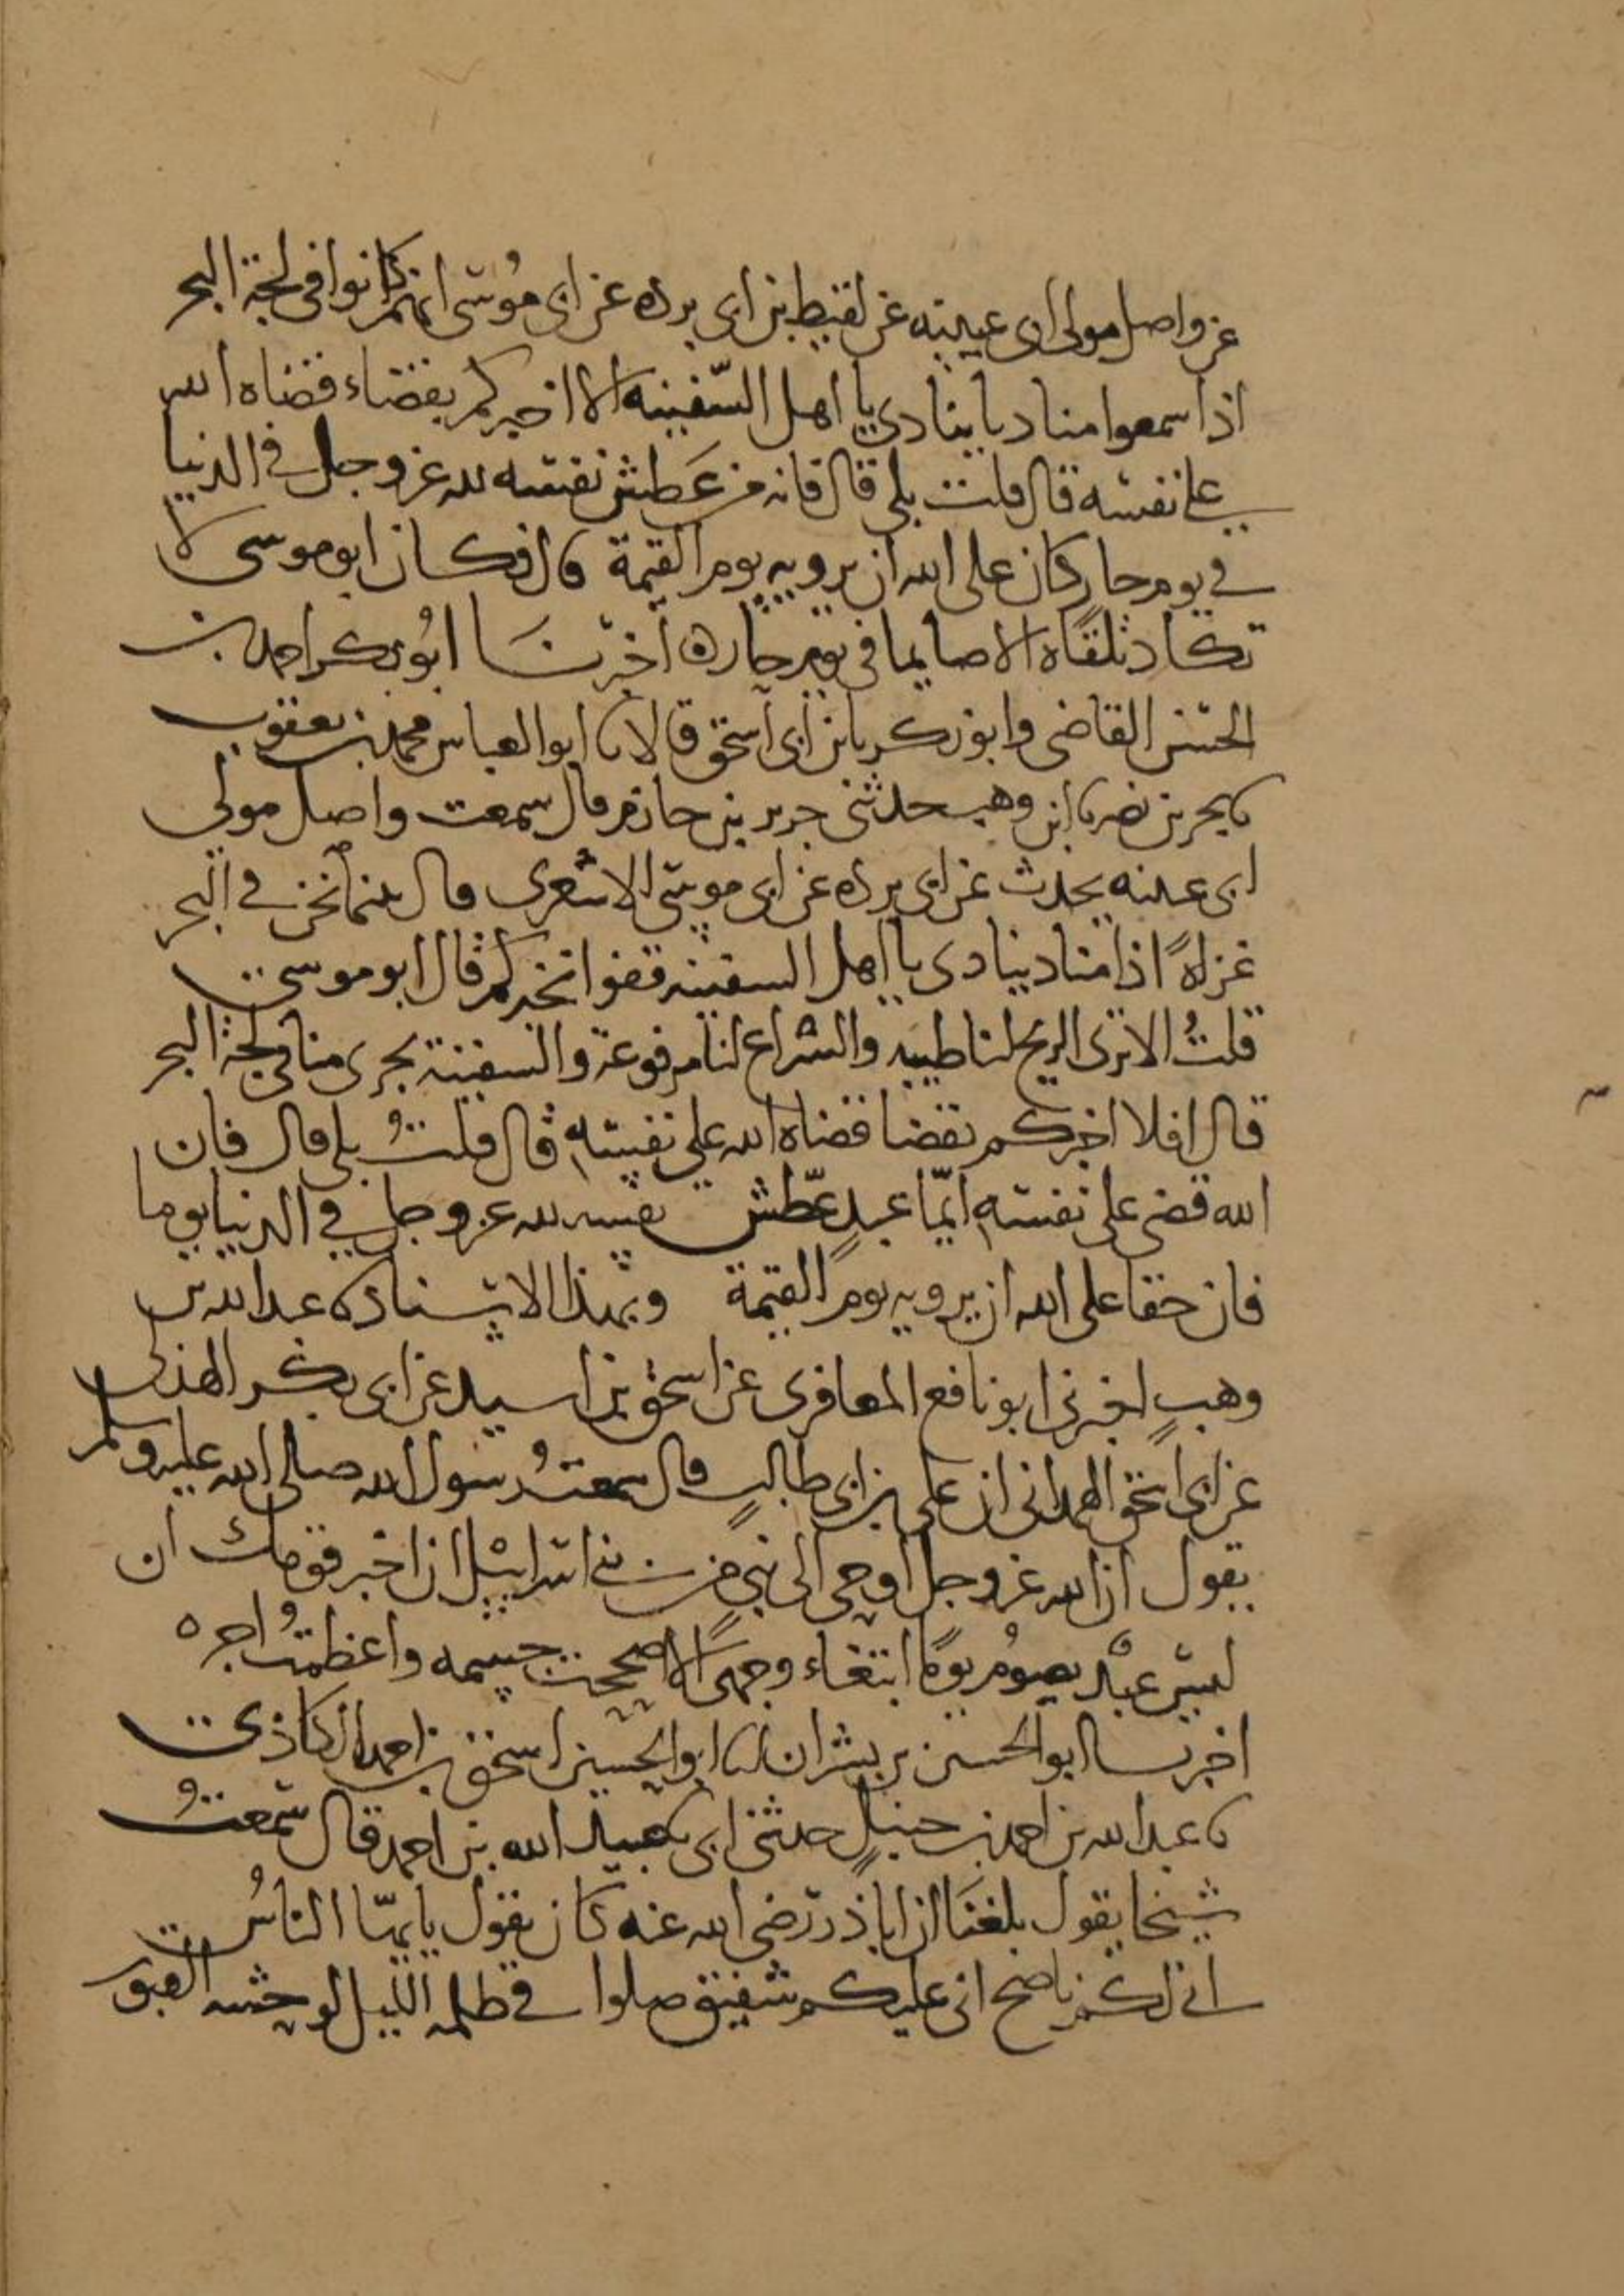 عن واصل مولى ابى عيينه عن لقيط بن ابى برده عن ابى موسى انهم كانوا فى لجة البحر
اذا سمعوا مناديا ينادى يا اهل السفينه الا اخبركم بقضاء قضاه الله
على نفسه قال قلت بلى قال فانه من عطش نفسه لله عز وجل فى الدنيا
فى يوم حار كان على الله ان يرويه يوم القيمة قال فكان ابو موسى لا
تكاد تلقاه الا صايما فى يوم حار ه اخبرنا ابو بكر احمد بن
الحسن القاضى وابو زكريا بن ابى اسحق قالا نا ابو العباس محمد بن يعقوب
نا بحر بن نصر نا ابن وهب حدثنى جرير بن حازم قال سمعت واصل مولى
ابى عيينه يحدث عن ابى برده عن ابى موسى الاشعرى قال بينما نحن فى البحر
غزاةً اذا مناد ينادى يا اهل السفينه قفوا نخبركم قال ابو موسى
قلتُ الا ترى الريح لنا طيبه والشراع لنا مرفوعة والسفينة تجرى منا فى لجة البحر
قال افلا اخبركم بقضا قضاه الله على نفسه قال قلتُ بلى قال فان
الله قضى على نفسه ايّما عبدٍ عطّش نفسه لله عز وجل فى الدنيا يوما
فان حقا على الله ان يرويه يوم القيمة وبهذا الاسناد نا عبد الله بن
وهبٍ اخبرنى ابو نافع المعافرى عن اسحق بن اسيد عن ابى بكر الهذلى
عن ابى اسحق الهمدانى ان على بن ابى طالبٍ قال سمعتُ رسول الله صلى الله عليه وسلم
يقول ان الله عز وجل اوحى الى نبىٍ من بنى اسرائيل ان اخبر قومك ان
ليس عبدٌ يصومُ يومًا ابتغاء وجهى الا اصححت جسمه واعظمتُ اجره
اخبرنا ابو الحسين بن بشران انا ابو الحسين اسحق بن احمد الكاذى
نا عبد الله بن احمد بن حنبلٍ حدثنى ابى عبيد الله بن احمد قال سمعتُ
شيخا يقول بلغنا ان ابا ذر رضى الله عنه كان يقول يايها الناسُ
انى لكم ناصح انى عليكم شفيق صلوا فى ظلمه الليل لوحشه القبور